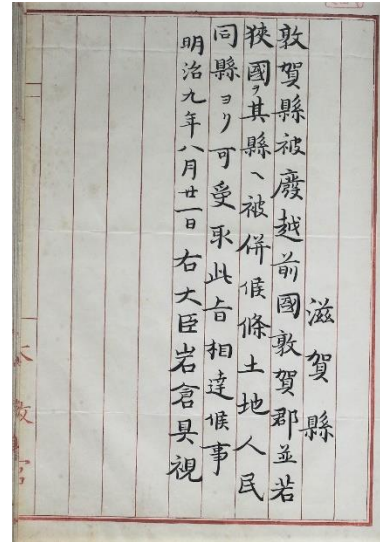 滋賀縣
敦賀縣被廢越前國敦賀郡並若
狹國ヲ其縣ヘ被併候條土地人民
同縣ヨリ可受取此旨相達候事
明治九年八月廿一日右大臣岩倉具視
太政官